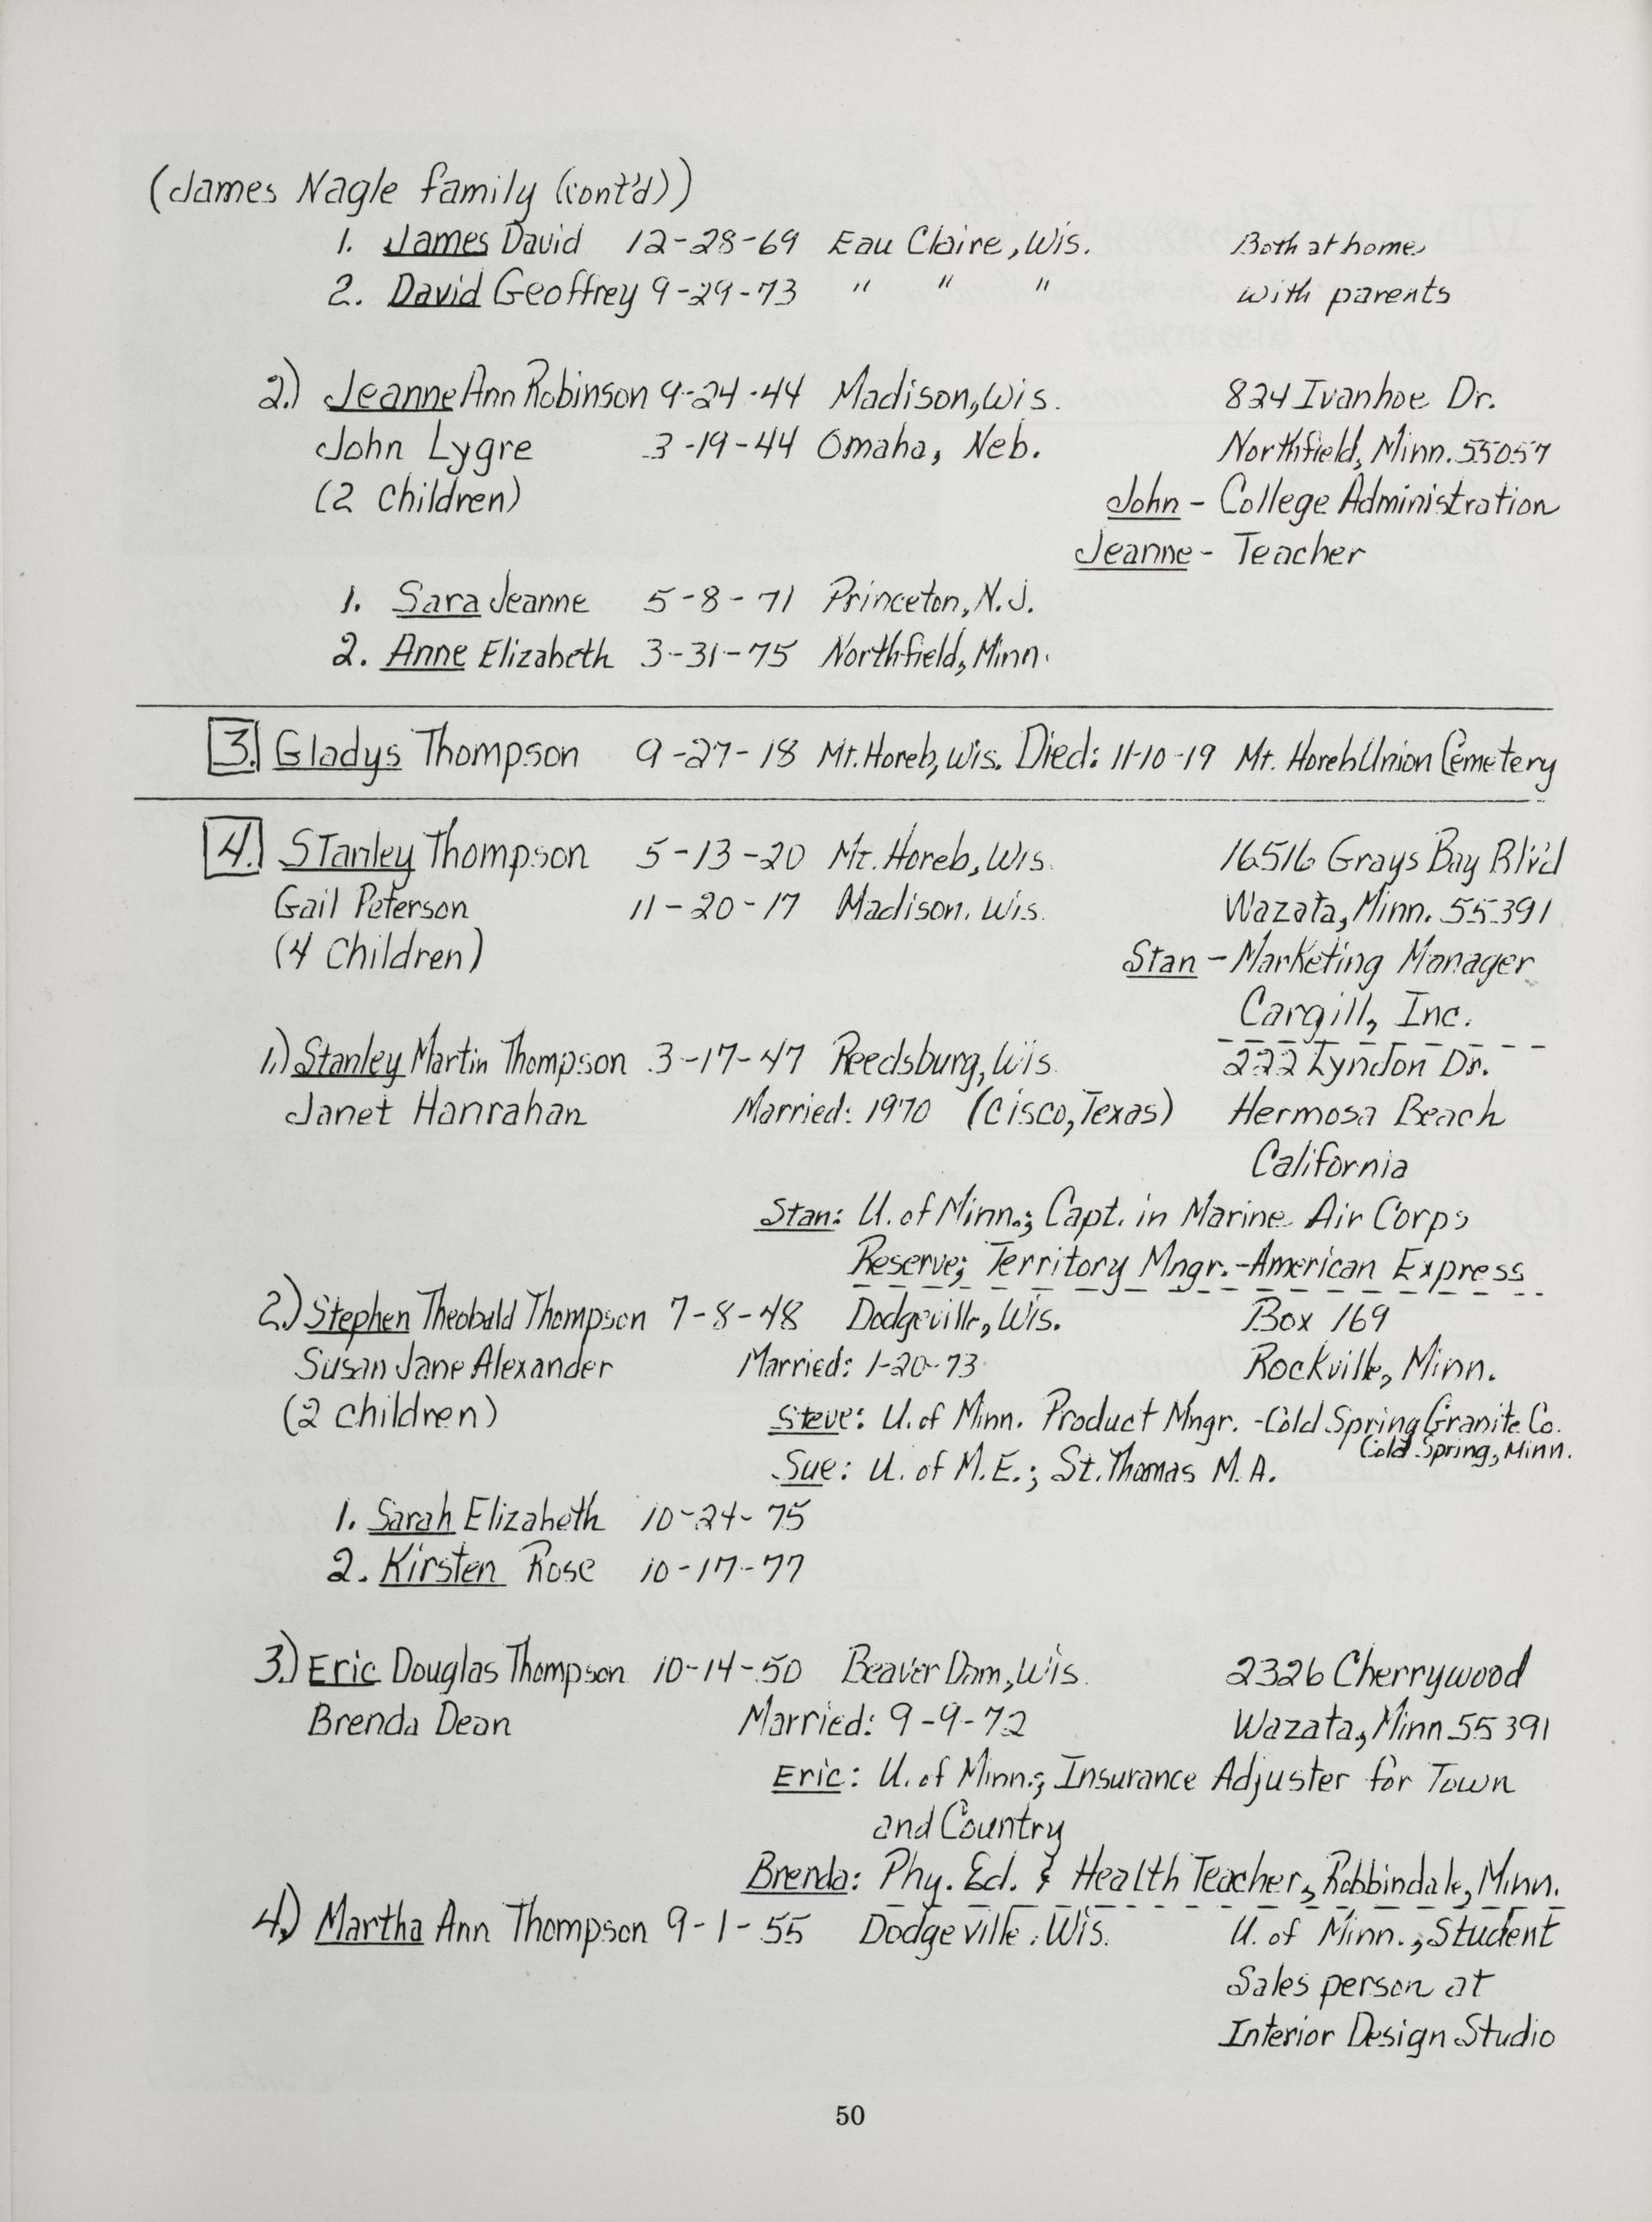 (James Nagle family (cont'd))
1. James David 12-28-69 Eau Claire, Wis. Both at home
2. David Geoffrey 9-29-73 " " " with parents
2.) Jeanne Ann Robinson 9-24-44 Madison, Wis. 824 Ivanhoe Dr.
John Lygre 3-19-44 Omaha, Neb. Northfield, Minn. 55057
(2 children) John - College Administration
Jeanne - Teacher
1. Sara Jeanne 5-8-71 Princeton, N.J.
2. Anne Elizabeth 3-31-75 Northfield, Minn.
3. Gladys Thompson 9-27-18 Mt. Horeb, Wis. Died: 11-10-19 Mt. Horeb Union Cemetery
4. Stanley Thompson 5-13-20 Mt. Horeb, Wis. 16516 Grays Bay Blv'd
Gail Peterson 11-20-17 Madison, Wis. Wazata, Minn. 55391
(4 Children) Stan - Marketing Manager
Cargill, Inc.
1.) Stanley Martin Thompson 3-17-47 Reedsburg, Wis. 222 Lyndon Dr.
Janet Hanrahan Married: 1970 (Cisco, Texas) Hermosa Beach
California
Stan: U. of Minn.; Capt. in Marine Air Corps
Reserve; Territory Mngr. - American Express
2.) Stephen Theobald Thompson 7-8-48 Dodgeville, Wis. Box 169
Susan Jane Alexander Married: 1-20-73 Rockville, Minn.
(2 children) Steve: U. of Minn. Product Mngr. - Cold Spring Granite Co.
Cold Spring, Minn.
Sue: U. of M.E.; St. Thomas M.A.
1. Sarah Elizabeth 10-24-75
2. Kirsten Rose 10-17-77
3.) Eric Douglas Thompson 10-14-50 Beaver Dam, Wis. 2326 Cherrywood
Brenda Dean Married: 9-9-72 Wazata, Minn 55391
Eric: U. of Minn.; Insurance Adjuster for Town
and Country
Brenda: Phy. Ed. & Health Teacher, Robbindale, Minn.
4.) Martha Ann Thompson 9-1-55 Dodgeville, Wis. U. of Minn.; Student
Sales person at
Interior Design Studio
50